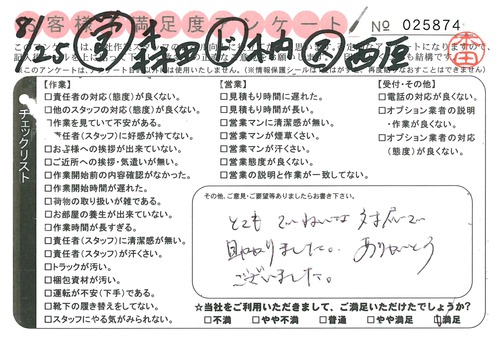 お客様満足度アンケート
№ 025874
8/25 営 森田 ド 柄 受 西屋
※このアンケートは、
以外には使用いたしません。(※情報保護シールは
再度貼りなおすことはできません)
チェックリスト
【作業】
□責任者の対応(態度)が良くない。
□他のスタッフの対応(態度)が良くない。
作業を見ていて不安がある。
任者(スタッフ)に好感が持てない。
□お客様への挨拶が出来ていない。
□ご近所への挨拶・気遣いが無い。
□作業開始前の内容確認がなかった。
□作業開始時間が遅れた。
□荷物の取り扱いが雑である。
□お部屋の養生が出来ていない。
□作業時間が長すぎる。
□責任者(スタッフ)に清潔感が無い。
□責任者(スタッフ)が汗くさい。
□トラックが汚い。
□梱包資材が汚い。
□運転が不安(下手)である。
□靴下の履き替えをしてない。
□スタッフにやる気がみられない。
【営業】
□見積もり時間に遅れた。
□見積もり時間が長い。
□営業マンに清潔感が無い。
□営業マンが煙草くさい。
□営業マンが汗くさい。
□営業態度が良くない。
□営業の説明と作業が一致してない。
【受付・その他】
□電話の対応が良くない。
□オプション業者の説明
・作業が良くない。
□オプション業者の対応
(態度)が良くない。
その他、ご意見・ご要望等ありましたらお書き下さい。
とても ていねいな 対応で
助かりました。 ありがとう
ございました。
☆当社をご利用いただきまして、ご満足いただけたでしょうか?
□不満 □やや不満 □普通 □やや満足 □満足